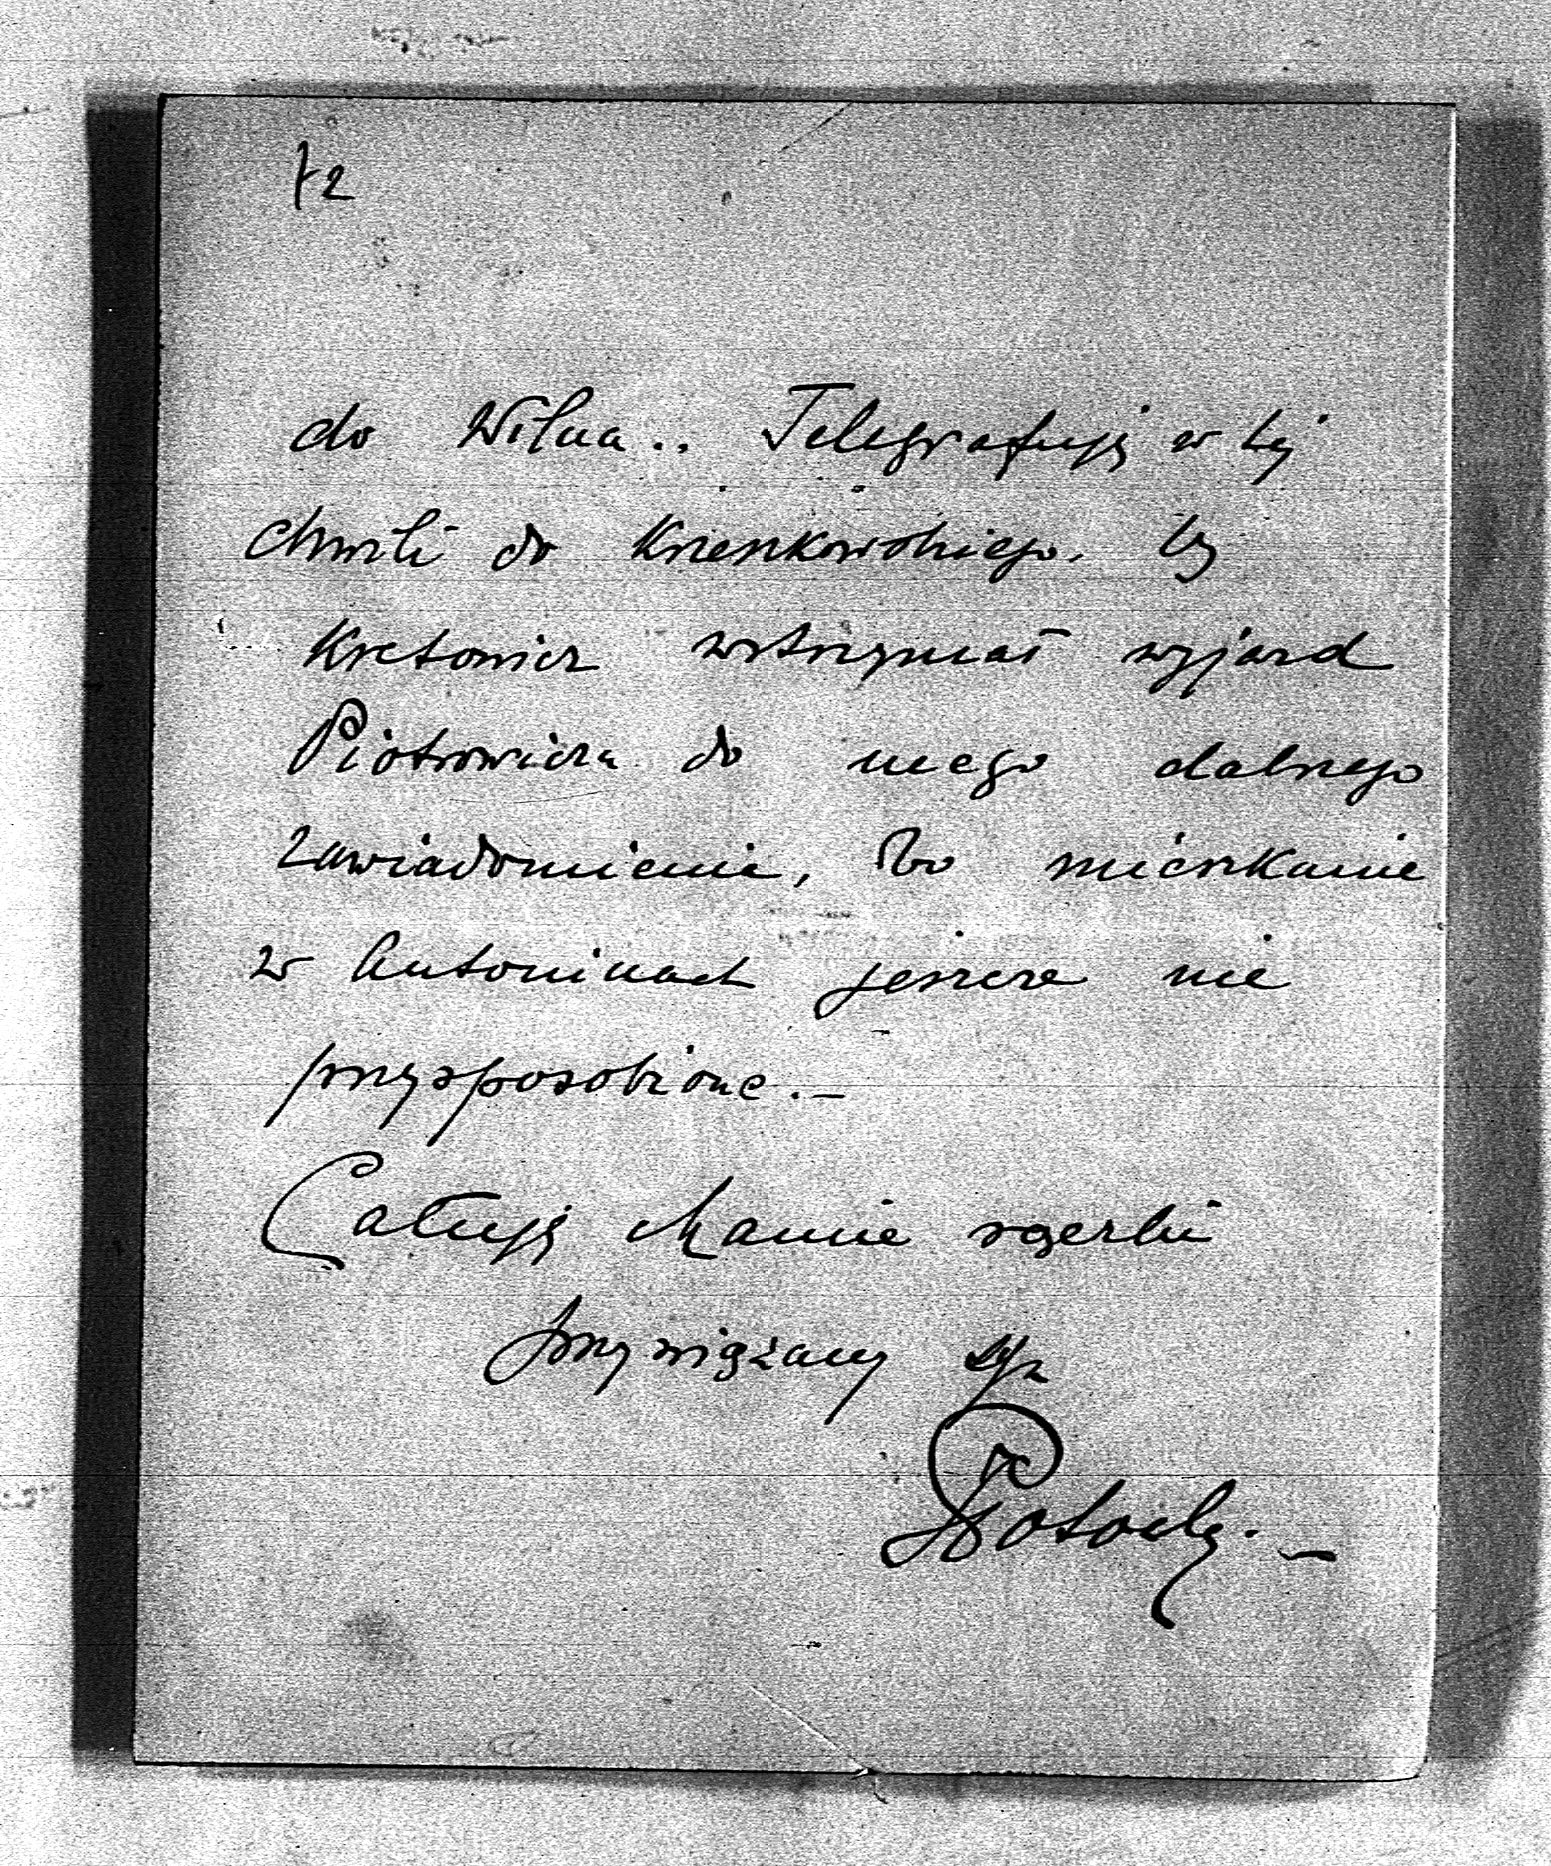 72
do Wilna.. Telegrafuję w tej
chwili do Krzeszkowskiego, by
Kretowicz wstrzymał wyjazd
Piotrowicza do mego dalszego
zawiadomienia, bo mieszkanie
w Antoninach jeszcze nie
przysposobione.—
Całuję Mamie rączki
przywiązany syn
Potocki.—